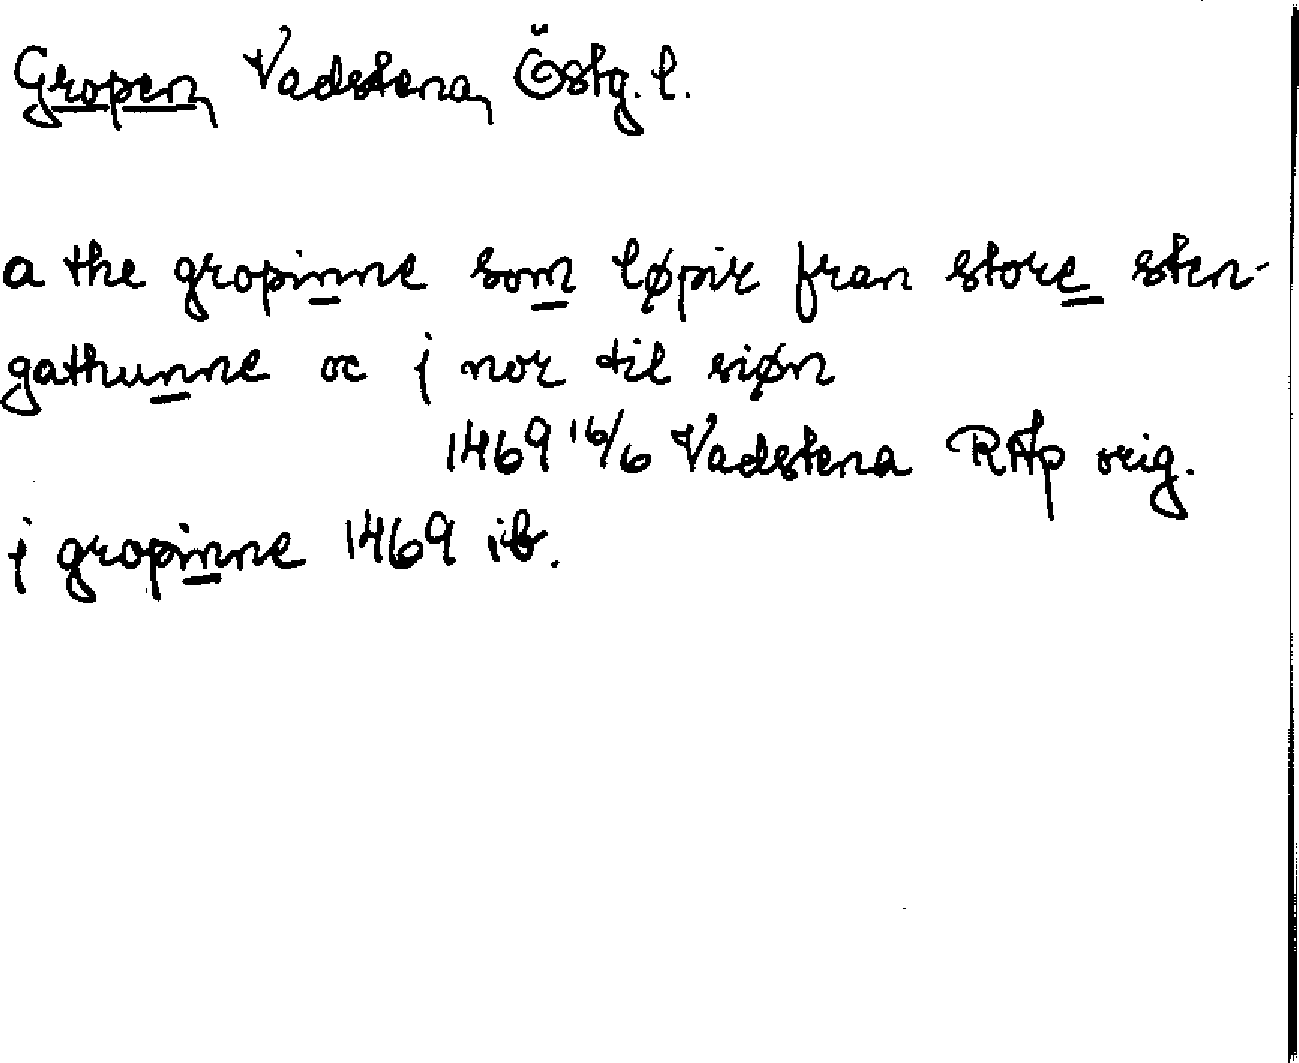 Gropen, Vadstena, Östg. l.
a the gropinne som løpir fran store sten-
gathunne oc j nor til siøn
1469 16/6 Vadstena RAp orig.
j gropinne 1469 ib.